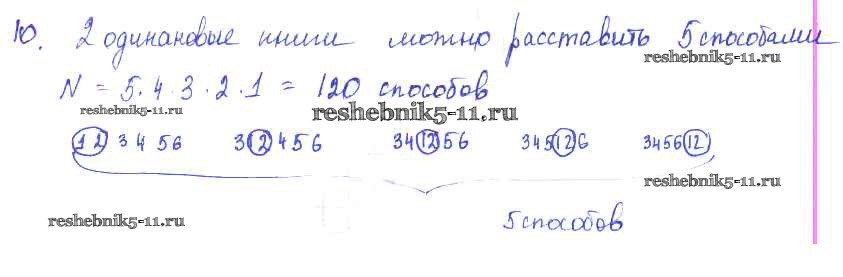 10. 2 одинаковые книги можно расставить 5 способами
reshebnik5-11.ru
N = 5 · 4 · 3 · 2 · 1 = 120 способов
reshebnik5-11.ru
reshebnik5-11.ru
12 3 4 5 6 3 12 4 5 6 3 4 12 5 6 3 4 5 12 6 3 4 5 6 12
reshebnik5-11.ru
reshebnik5-11.ru
5 способов